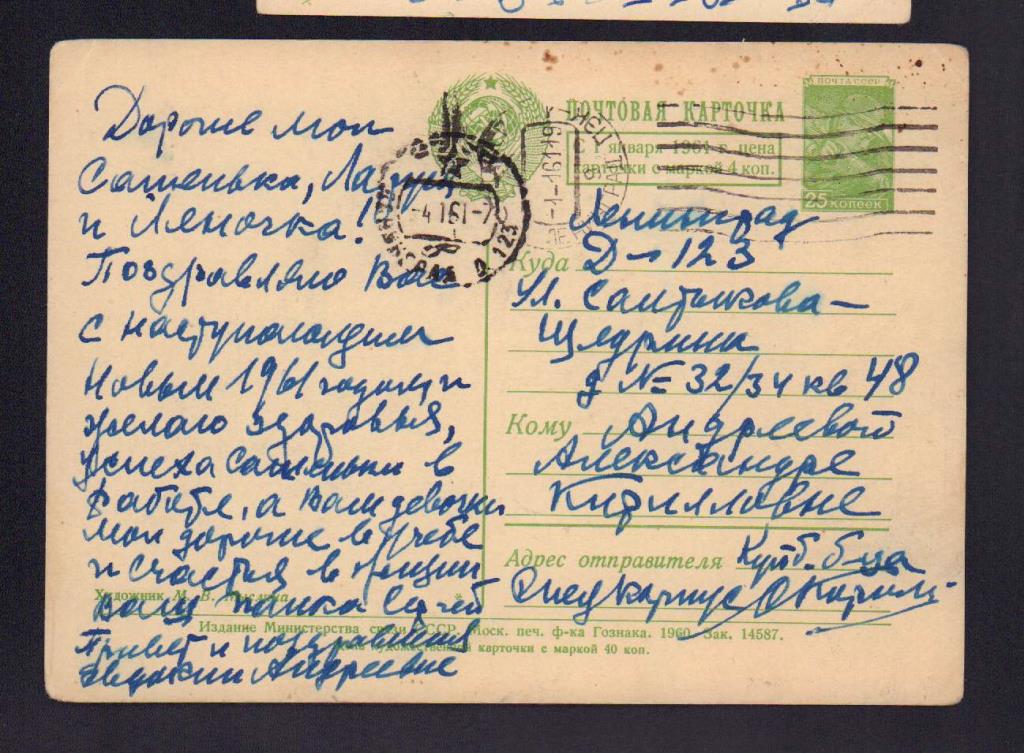 Дорогие мои
Сашенька,
и Леночка!
Поздравляю Вас
с наступающим
Новым 1961 годом и
желаю здоровья,
успеха Сашеньки в
работе, а Вам девочки
мои дорогие в учебе
и счастья в жизни
Ваш папка Сергей
Привет и поздравления
Евдокии Андреевне
ПОЧТОВАЯ КАРТОЧКА
С 1 января 1961 г. цена
карточки с маркой 4 коп.
ПОЧТА СССР
25 КОПЕЕК
-4 1 61-7
123
Куда
Ленинград
Д-123
Ул. Салтыкова-
Щедрина
д № 32/34 кв 48
Кому
Андреевой
Александре
Кирилловне
Адрес отправителя
б-ца
Художник М. В.
Издание Министерства связи СССР. Моск. печ. ф-ка Гознака. 1960. Зак. 14587.
Цена художественной карточки с маркой 40 коп.